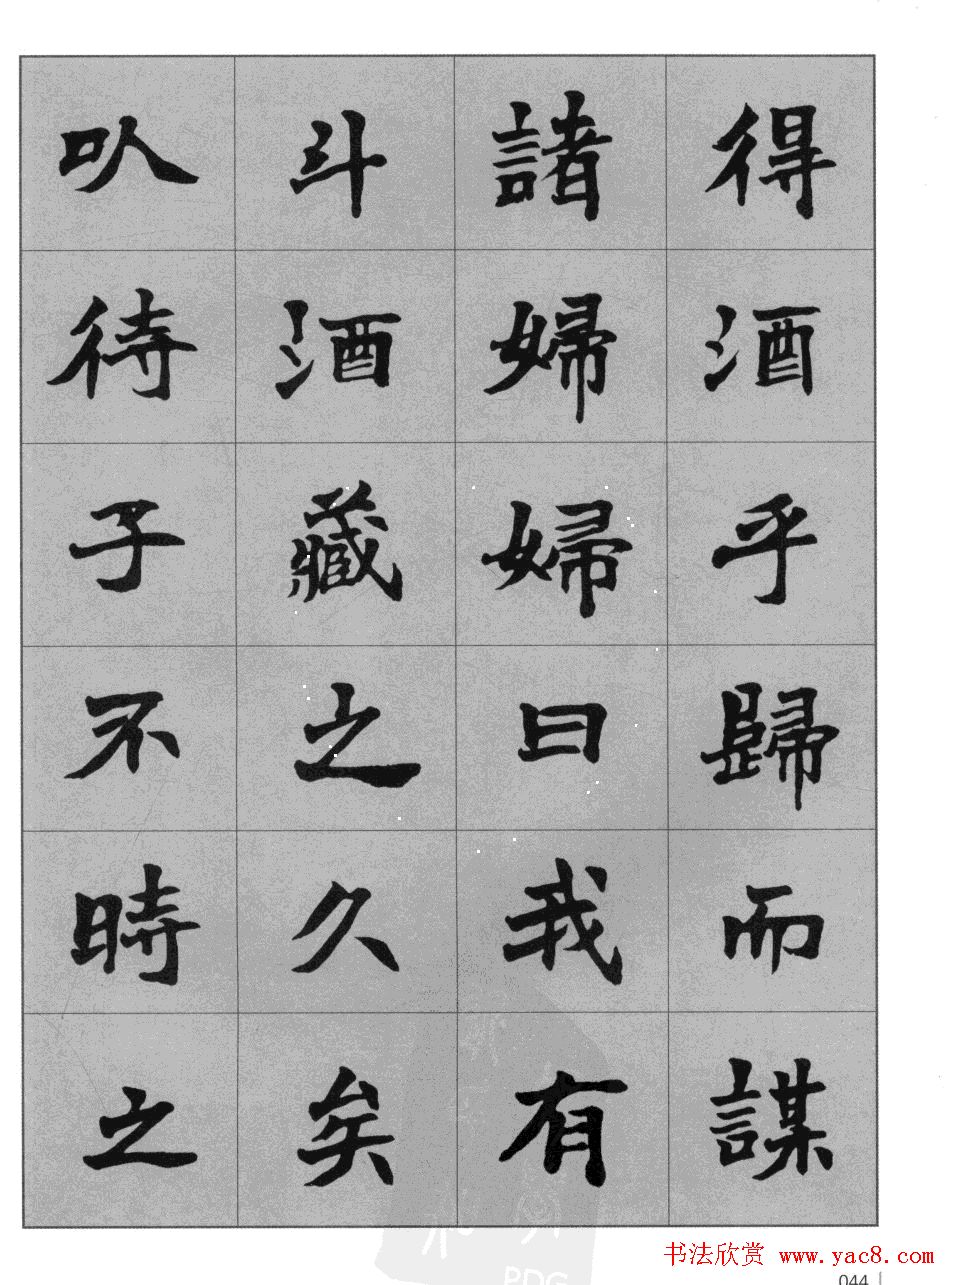 得酒乎歸而謀
諸婦婦曰我有
斗酒藏之久矣
㕥待子不時之
书法欣赏 www.yac8.com
044
PDG